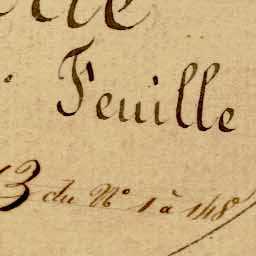 Feuille
3 du N° 1 à 148